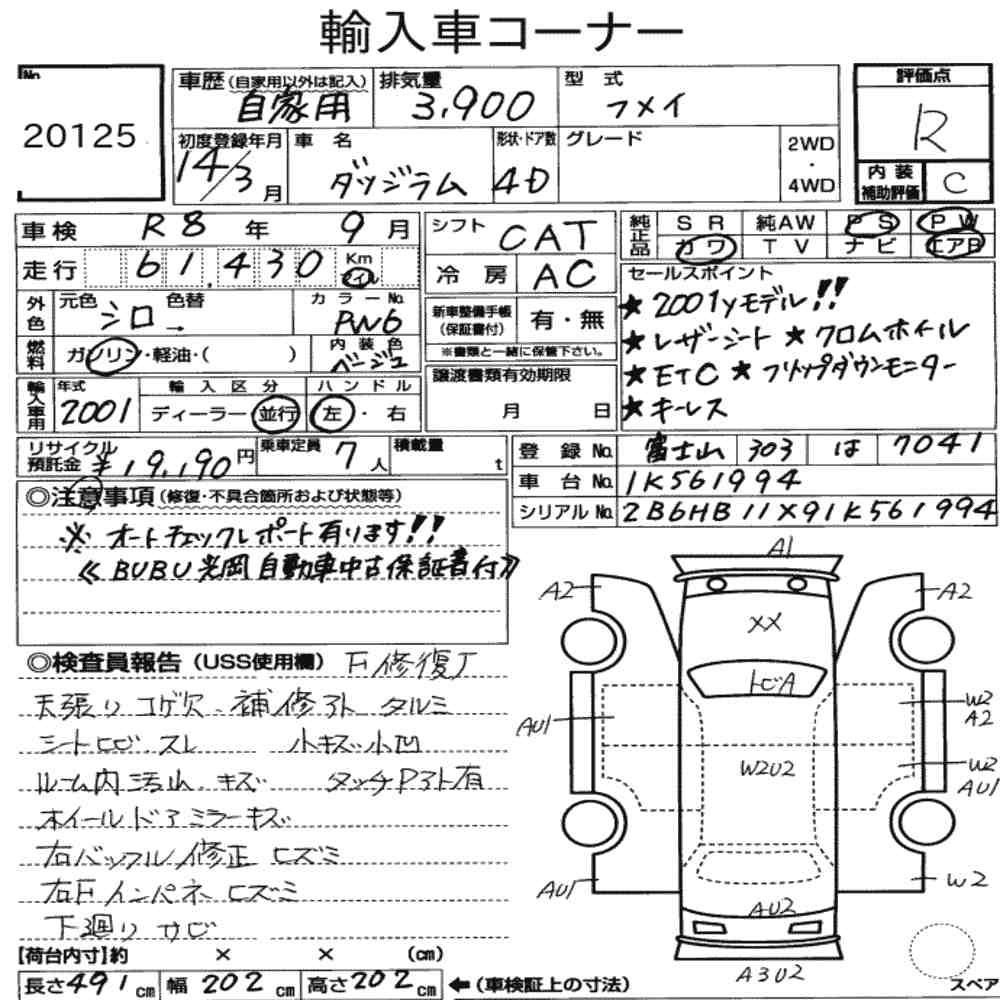 輸入車コーナー
No.
20125
車歴（自家用以外は記入） 排気量 型 式 評価点
自家用 3,900 フメイ R
初度登録年月 車 名 形状・ドア数 グレード 2WD・4WD
14/3月 ダッジラム 4D
内装補助評価 C
車検 R8 年 9 月
走行 61,430 Km マイル
外色 元色 シロ 色替 → カラーNo. PW6
燃料 ガソリン・軽油・（ ） 内装色 ベージュ
輸入車用 年式 輸入区分 ハンドル
2001 ディーラー 並行 左・右
シフト CAT
冷房 AC
新車整備手帳（保証書付） 有・無
※書類と一緒に保管下さい。
譲渡書類有効期限
月 日
純正品 SR 純AW PS PW
カワ TV ナビ エアB
セールスポイント
★2001yモデル!!
★レザーシート ★クロムホイル
★ETC ★フリップダウンモニター
★キーレス
リサイクル預託金 ¥19,190円 乗車定員 7人 積載量 t
登録No. 富士山 303 は 7041
車台No. 1K561994
シリアルNo. 2B6HB11X91K561994
◎注意事項（修復・不具合箇所および状態等）
※ オートチェックレポート有ります!!
《BUBU光岡自動車中古保証書付》
◎検査員報告（USS使用欄） F修復
天張りコゲ穴 補修アト タルミ
シートヒビ スレ 小キズ小凹
ルーム内汚 キズ タッチPアト有
ホイールドアミラーキズ
右バッフル修正ヒズミ
右Fインパネヒズミ
下廻りサビ
A1
A2
A2
XX
トビA
AU1
W2
A2
W2U2
W2
AU1
AU1
W2
AU2
A3U2
スペア
【荷台内寸】約 × × （cm）
長さ491cm 幅202cm 高さ202cm ←（車検証上の寸法）